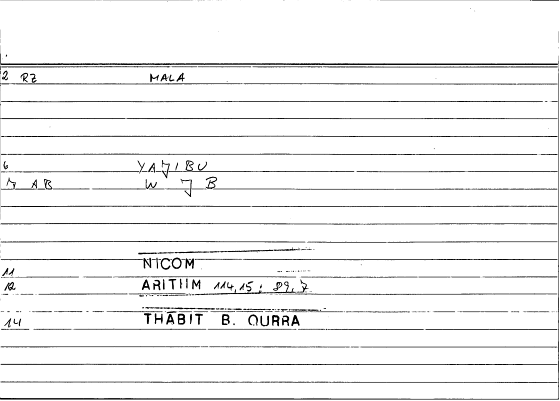 2 RZ MALA
6 YAJIBU
7 AB W J B
11 NICOM
12 ARITIIM 114,15 : 89,7
14 THĀBIT B. QURRA